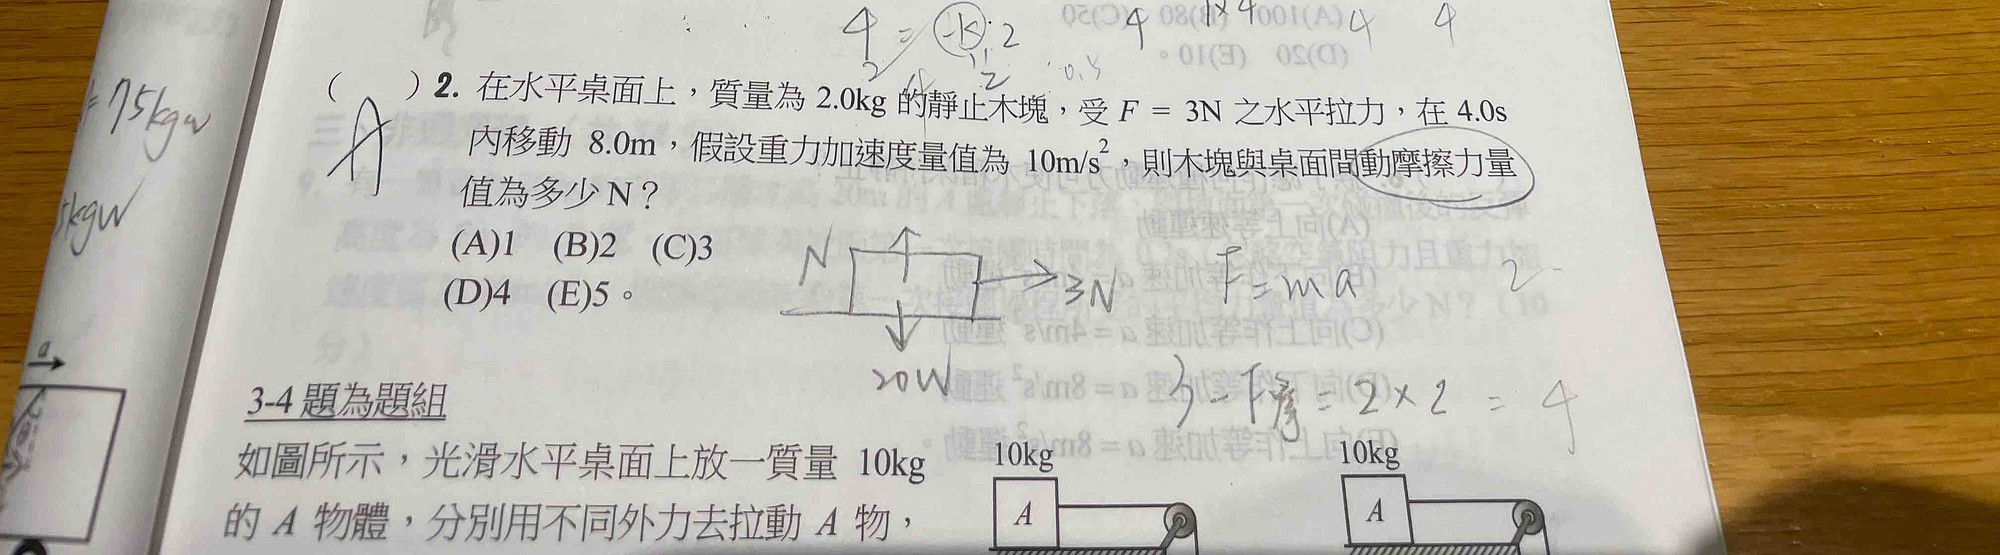 4 = -k · 2
4 1×4 4 4
( ) 2. 在水平桌面上，質量為 2.0kg 的靜止木塊，受 F = 3N 之水平拉力，在 4.0s
內移動 8.0m，假設重力加速度量值為 10m/s²，則木塊與桌面間動摩擦力量
值為多少 N？
A
(A)1 (B)2 (C)3
(D)4 (E)5。
N
3N
20W
F = ma
2
3 - F摩 = 2×2 = 4
= 75kgw
kgw
a
3-4 題為題組
如圖所示，光滑水平桌面上放一質量 10kg
的 A 物體，分別用不同外力去拉動 A 物，
10kg
A
10kg
A